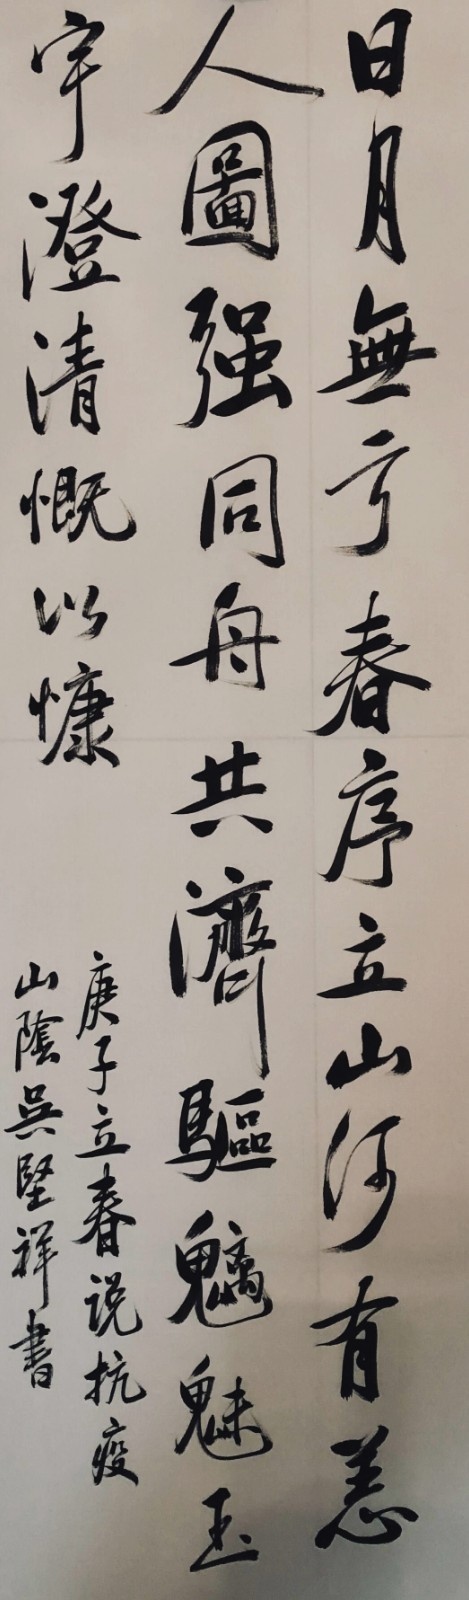 日月無亏春序立山河有恙
人圖强同舟共濟驅魑魅玉
宇澄清慨以慷
庚子立春说抗疫
山陰吳堅祥書